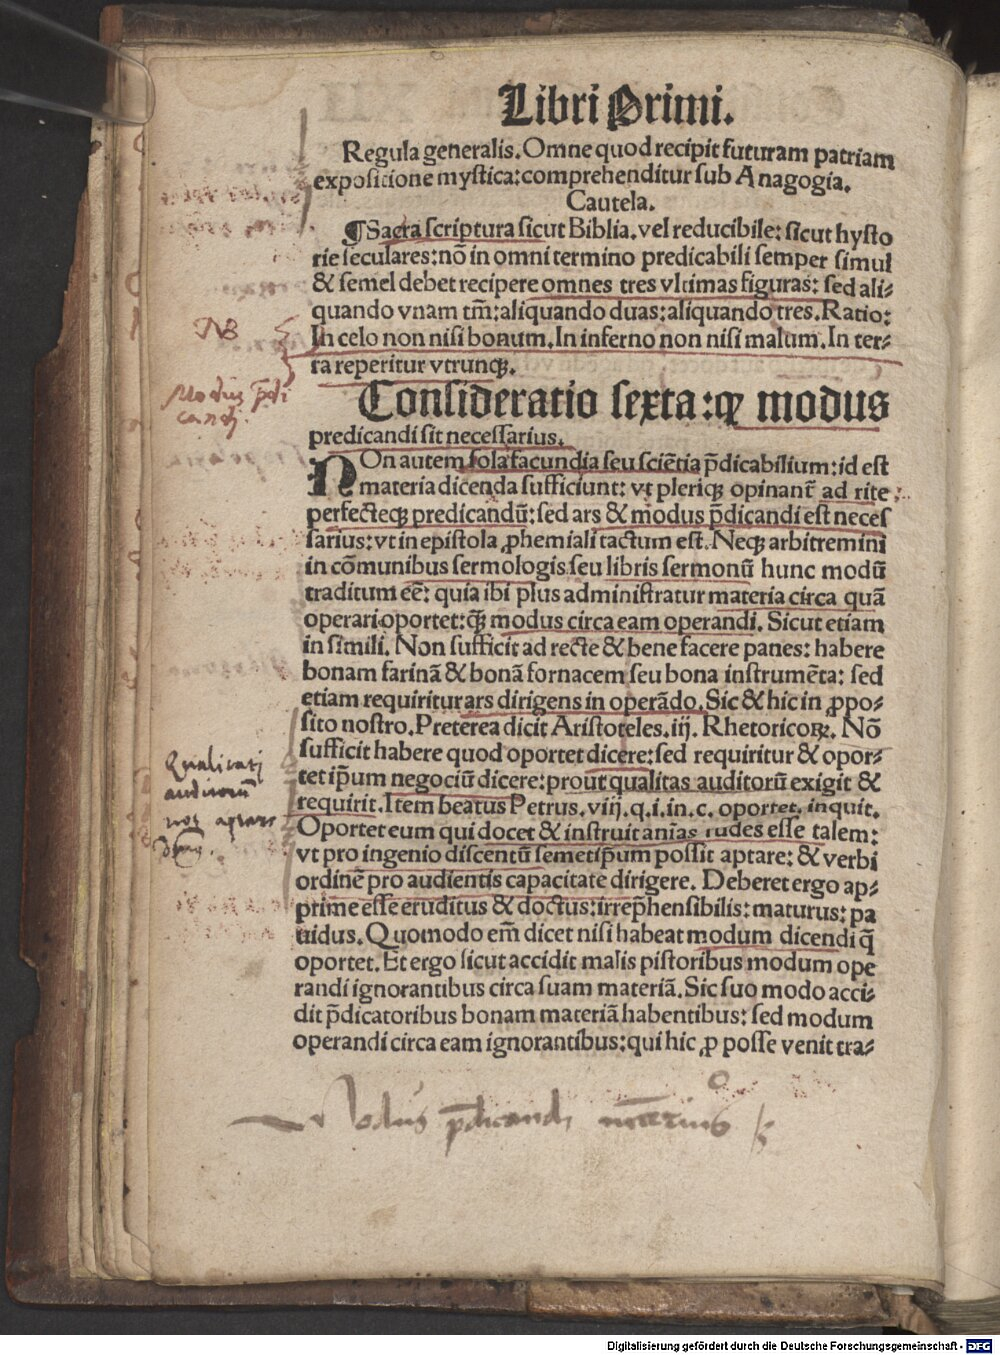 Libri Primi.
Regula generalis. Omne quod recipit futuram patriam
expositione mystica: comprehenditur sub Anagogia.
Cautela.
¶ Sacra scriptura sicut Biblia. vel reducibile: sicut hysto
rie seculares: nō in omni termino predicabili semper simul
& semel debet recipere omnes tres vltimas figuras: sed ali⸗
quando vnam tm̄: aliquando duas: aliquando tres. Ratio:
In celo non nisi bonum. In inferno non nisi malum. In ter⸗
ra reperitur vtrunqꝫ.
NB
Consideratio sexta: ꝙ modus
predicandi sit necessarius.
Modus p̄di
candj.
NOn autem sola facundia seu sciētia p̄dicabilium: id est
materia dicenda sufficiunt: vt pleriqꝫ opinant̄ ad rite
perfecteqꝫ predicandū: sed ars & modus p̄dicandi est neces
sarius: vt in epistola ꝓhemiali tactum est. Neqꝫ arbitremini
in cōmunibus sermologis seu libris sermonū hunc modū
traditum eē: quia ibi plus administratur materia circa quā
operari oportet: qꝫ̄ modus circa eam operandi. Sicut etiam
in simili. Non sufficit ad recte & bene facere panes: habere
bonam farinā & bonā fornacem seu bona instrumēta: sed
etiam requiritur ars dirigens in operādo. Sic & hic in ꝓpo⸗
sito nostro. Preterea dicit Aristoteles. iij. Rhetoricoꝝ. Nō
sufficit habere quod oportet dicere: sed requiritur & opor⸗
tet ip̄um negociū dicere: prout qualitas auditorū exigit &
requirit. Item beatus Petrus. viij. q. i. in. c. oportet. inquit.
Oportet eum qui docet & instruit anīas rudes esse talem:
vt pro ingenio discentū semetip̄um possit aptare: & verbi
ordinē pro audientis capacitate dirigere. Deberet ergo ap⸗
prime esse eruditus & doctus: irrep̄hensibilis: maturus: pa
uidus. Quomodo em̄ dicet nisi habeat modum dicendi q̄
oportet. Et ergo sicut accidit malis pistoribus modum ope
randi ignorantibus circa suam materiā. Sic suo modo acci⸗
dit p̄dicatoribus bonam materiā habentibus: sed modum
operandi circa eam ignorantibus: qui hic ꝓ posse venit tra⸗
Qualitatj
auditorū
nos aptare
Modus p̄dicandj
Digitalisierung gefördert durch die Deutsche Forschungsgemeinschaft - DFG